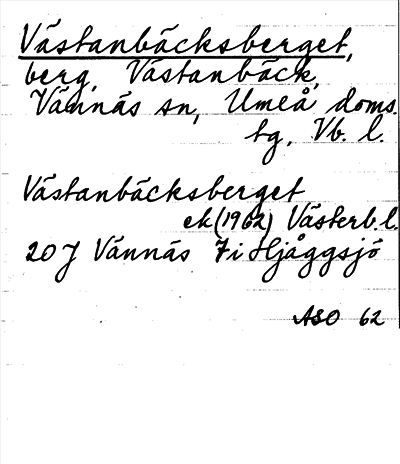 Västanbäcksberget,
berg, Västanbäck,
Vännäs sn, Umeå doms.
tg, Vb. l.
Västanbäcksberget
ek (1962) Västerb. l.
20J Vännäs 7i Hjåggsjö
ASO 62